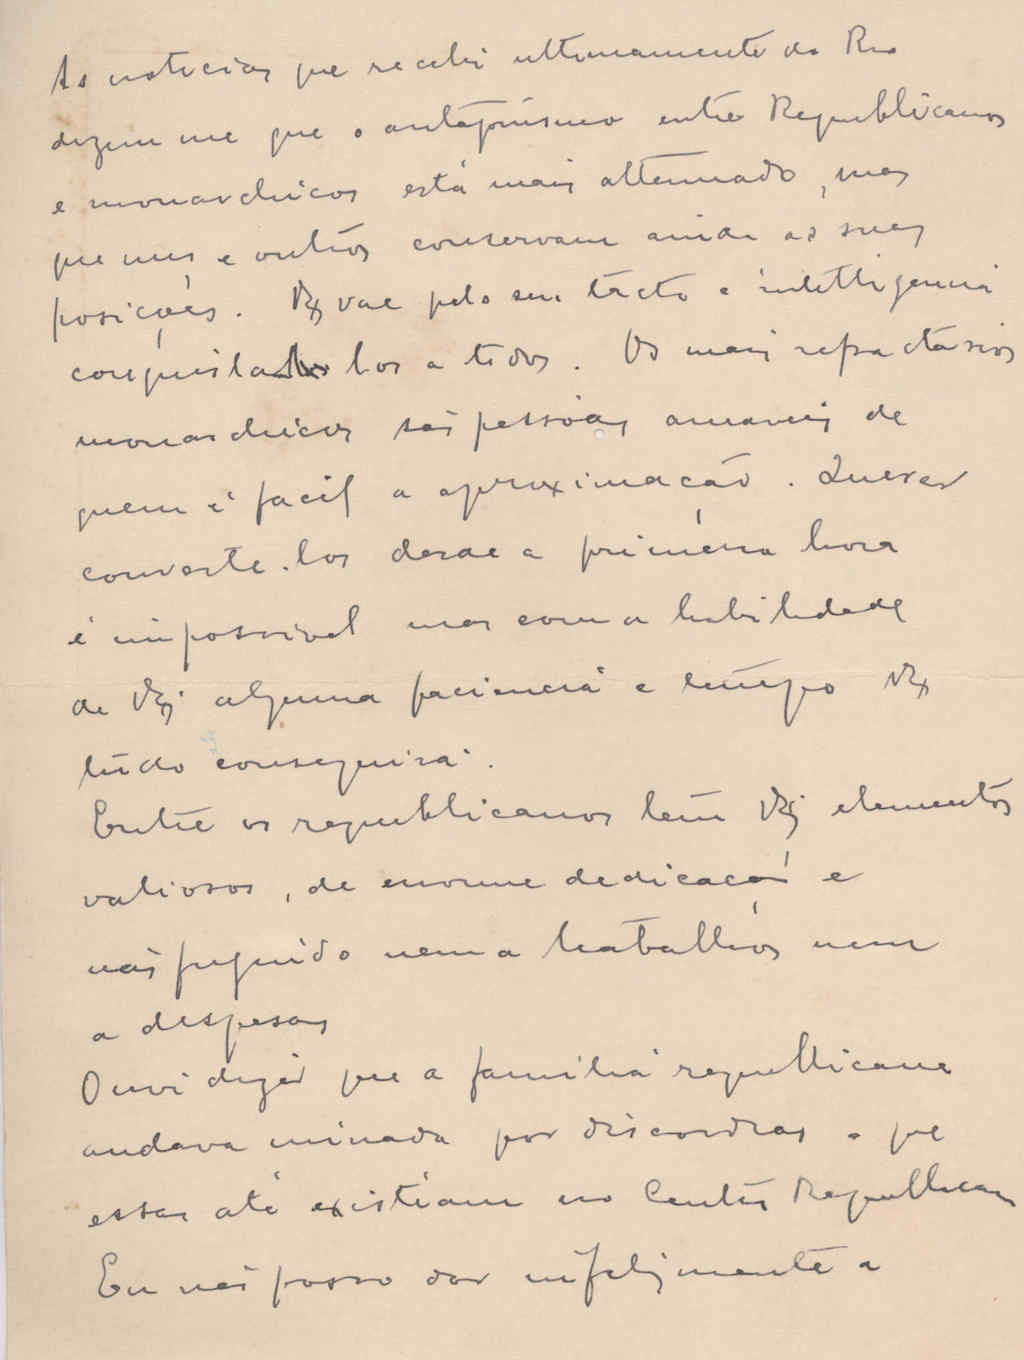 As noticias que recebi ultimamente do Rio
dizem me que o antagonismo entre Republicanos
e monarchicos está mais attenuado, mas
que uns e outros conservam ainda as suas
posições. VEx vae pelo seu tacto e intelligencia
conquista los a todos. Os mais refractarios
monarchicos são pessoas amaveis de
quem é facil a aproximação. Querer
converte-los desde a primeira hora
é impossivel mas com a habilidade
de VEx alguma paciencia e tempo VEx
tudo conseguirá.
Entre os republicanos tem VEx elementos
valiosos, de enorme dedicação e
não fugindo nem a trabalhos nem
a despesas
Ouvi dizer que a familia republicana
andava minada por discordias e que
essas até existiam no Centro Republicano
Eu não posso dar infelizmente a